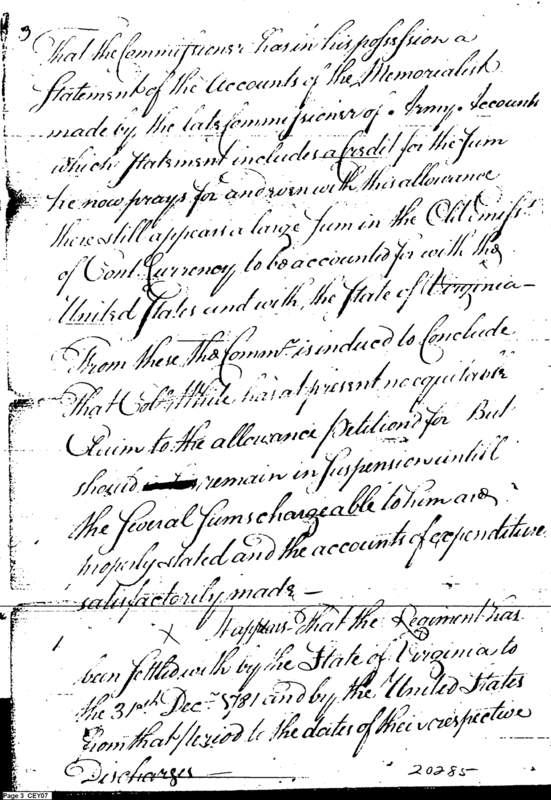 3
That the Commissioner has in his possession a
Statement of the Accounts of the Memorialist
made by the late Commissioner of Army Accounts
which Statement includes a Credit for the Sum
he now prays for and even with this allowance
there still appears a large Sum in the Old Emiss.
of Cont. Currency to be accounted for with the
United States and with the State of Virginia —
From these the Commr. is induced to Conclude
That Colo. White has at present no equitable
Claim to the allowance petitiond for But
should remain in Suspension untill
the Several Sums chargeable to him are
properly stated and the accounts of expenditure
satisfactorily made —
X It appears That the Regiment has
been settled with by the State of Virginia to
the 31st Decr. 1781 and by the United States
from that period to the dates of their respective
Discharges —
20285
Page 3 CEY07